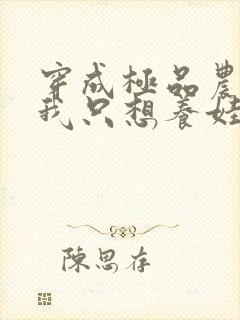 穿成極品農
我只想養娃
陳思存